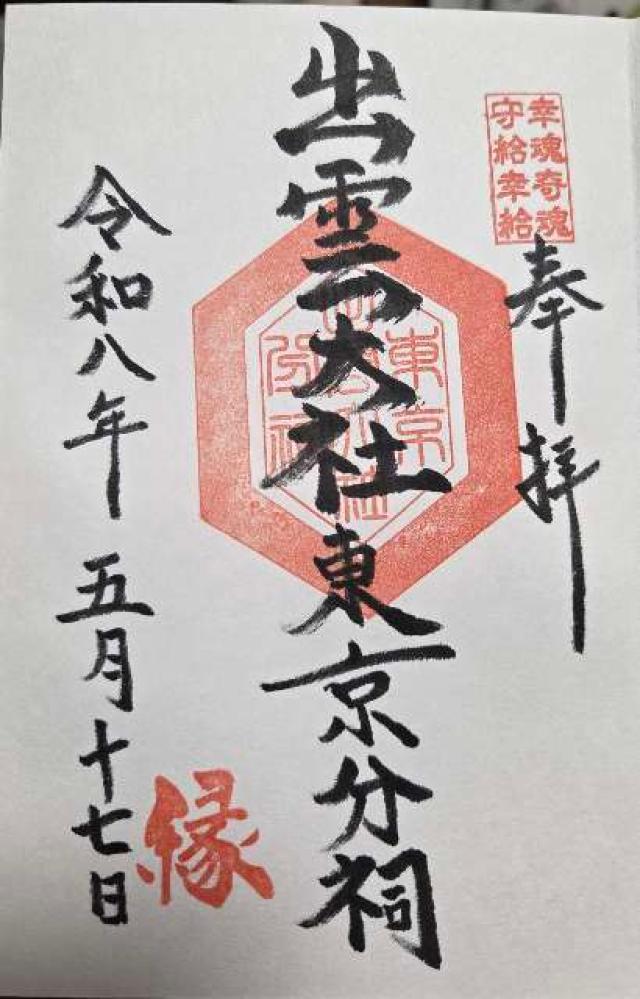 幸魂奇魂
守給幸給
奉拝
出雲大社東京分祠
令和八年 五月十七日
縁